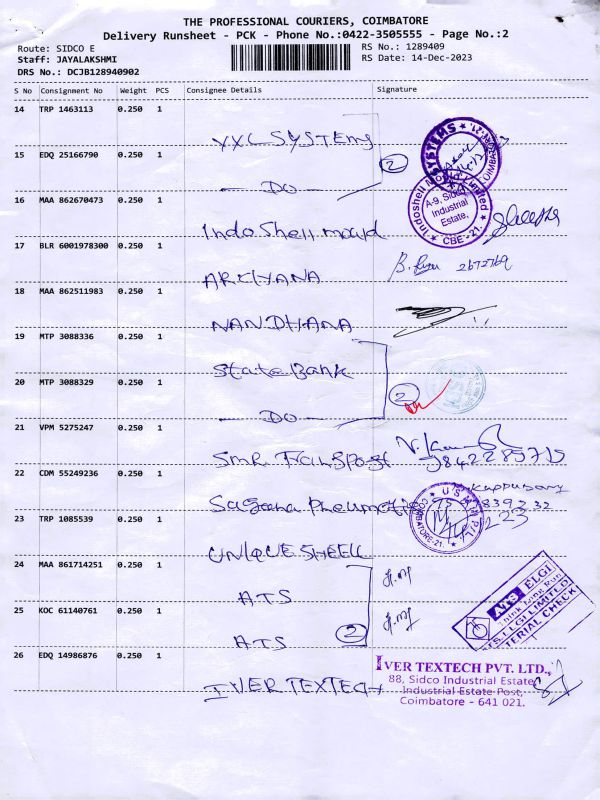 THE PROFESSIONAL COURIERS, COIMBATORE
Delivery Runsheet - PCK - Phone No.:0422-3505555 - Page No.:2
Route: SIDCO E
Staff: JAYALAKSHMI
DRS No.: DCJB128940902
RS No.: 1289409
RS Date: 14-Dec-2023
S No Consignment No Weight PCS Consignee Details Signature
14 TRP 1463113 0.250 1
VXL SYSTEMS
15 EDQ 25166790 0.250 1
DO
2
SYSTEMS
16 MAA 862670473 0.250 1
Indo Shell mould
Indoshell Mould Limited
A-9, Sidco
Industrial
Estate,
CBE-21.
17 BLR 6001978300 0.250 1
ARCHANA
B. 2672769
18 MAA 862511983 0.250 1
NANDHANA
19 MTP 3088336 0.250 1
State Bank
20 MTP 3088329 0.250 1
DO
2
21 VPM 5275247 0.250 1
SMR Transport
9842285715
22 CDM 55249236 0.250 1
Sagana Pneumatic
Kuppusamy
23 TRP 1085539 0.250 1
UNIQUE SHELL
COIMBATORE-21.
24 MAA 861714251 0.250 1
ATS
25 KOC 61140761 0.250 1
ATS
2
ATS ELGI
ATS ELGI LIMITED
MATERIAL CHECK
26 EDQ 14986876 0.250 1
IVER TEXTECH
IVER TEXTECH PVT. LTD.,
88, Sidco Industrial Estate,
Industrial Estate Post,
Coimbatore - 641 021.